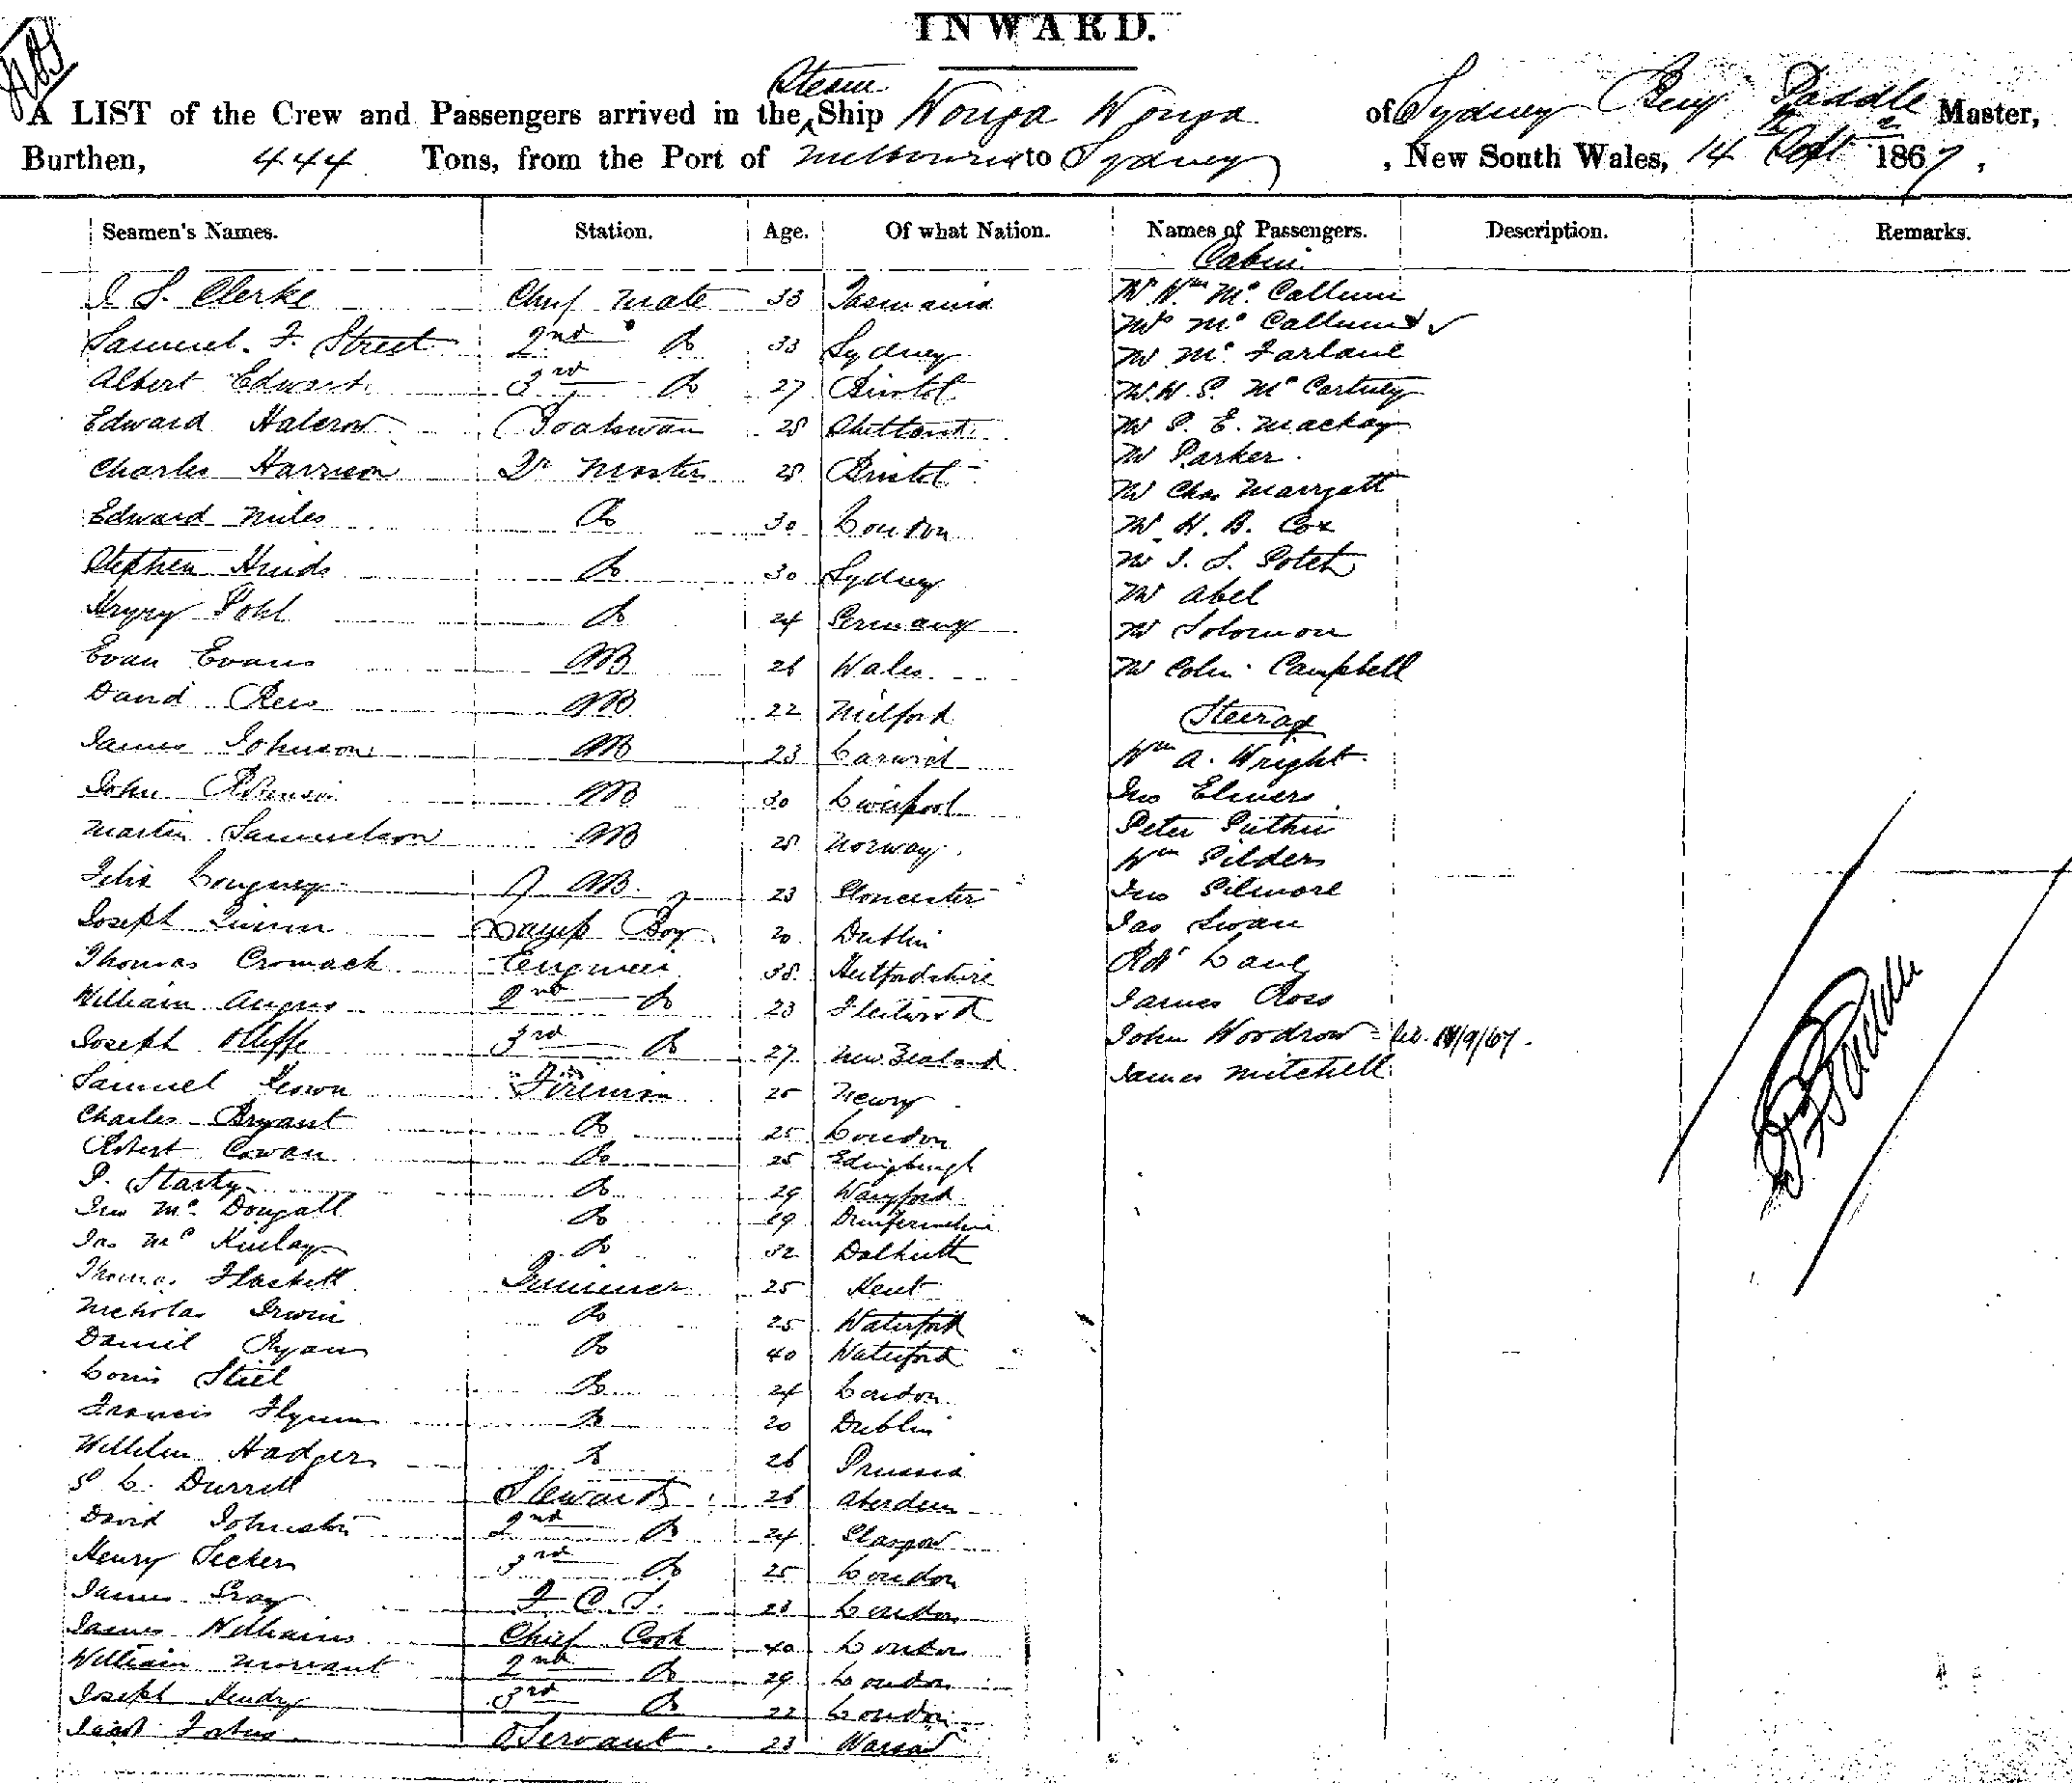 INWARD.
A LIST of the Crew and Passengers arrived in the Steam Ship Wonga Wonga of Sydney Benj Paddle Master,
Burthen, 444 Tons, from the Port of Melbourne to Sydney, New South Wales, 14th Sept 1867,
Seamen's Names. Station. Age. Of what Nation. Names of Passengers. Description. Remarks.
Cabin
J. S. Clerke Chief Mate 33 Tasmania Mr Wm Mc Callum
Mrs Mc Callum
Samuel F. Street 2nd Do 33 Sydney Mr Mc Farlane
Albert Edward 3rd Do 27 Bristol Mr H. S. Mc Cartney
Edward Halcrow Boatswain 28 Shetland Mr P. E. Mackay
Charles Harrison Qr Master 28 Bristol Mr Parker
Mr Chas
Edward Miles Do 30 London Mr H. B. Cox
Stephen Hinds Do 30 Sydney Mr J. S.
Pohl Do 24 Germany Mr Abel
Mr Solomon
Evan Evans AB 26 Wales Mr Colin Campbell
David Rees AB 22 Milford Steerage
James Johnson AB 23 Wm A. Wright
John Robinson AB 30 Liverpool Jno Elmers
Martin Samuelson AB 28 Norway Peter
Wm Gilders
AB 23 Gloucester Jno Gilmore
Joseph Lamp Boy 20 Dublin Jas Swan
Thomas Cromack Engineer 38 Hertfordshire Robt Lane
William Angus 2nd Do 23 Fleetwood James Ross
Joseph Olliffe 3rd Do 27 New Zealand John Woodrow = 14/9/67.
Samuel Keown Fireman 25 Newry James Mitchell
Charles Bryant Do 25 London
Robert Cowan Do 25 Edinburgh
P. Starty Do 29
Jno Mc Dougall Do 29 Dunfermline
Jas Mc Kinlay Do 32 Dalkeith
Thomas Flackett Trimmer 25 Kent
Nicholas Irwin Do 25 Waterford
Daniel Ryan Do 40 Waterford
Louis Stiel Do 24 London
Francis Flynn Do 20 Dublin
Wilhelm Hadgen Do 26 Prussia
Durrell Steward 26 Aberdeen
David Johnston 2nd Do 24 Glasgow
Henry Secker 3rd Do 25 London
James Gray F. C. S. 23 London
James Williams Chief Cook 40 London
William Morvant 2nd Do 29 London
Joseph Hendry 3rd Do 22 London
Servant 23 Warsaw
B Paddle